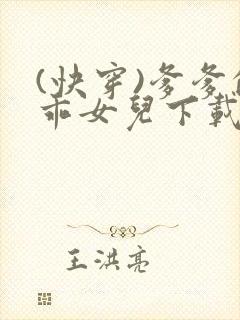 (快穿)爹爹
乖女兒下載
王洪亮